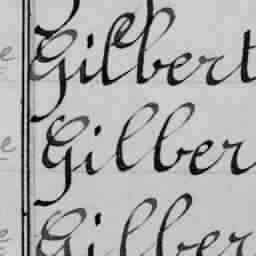 Gilbert
Gilber
Gilber